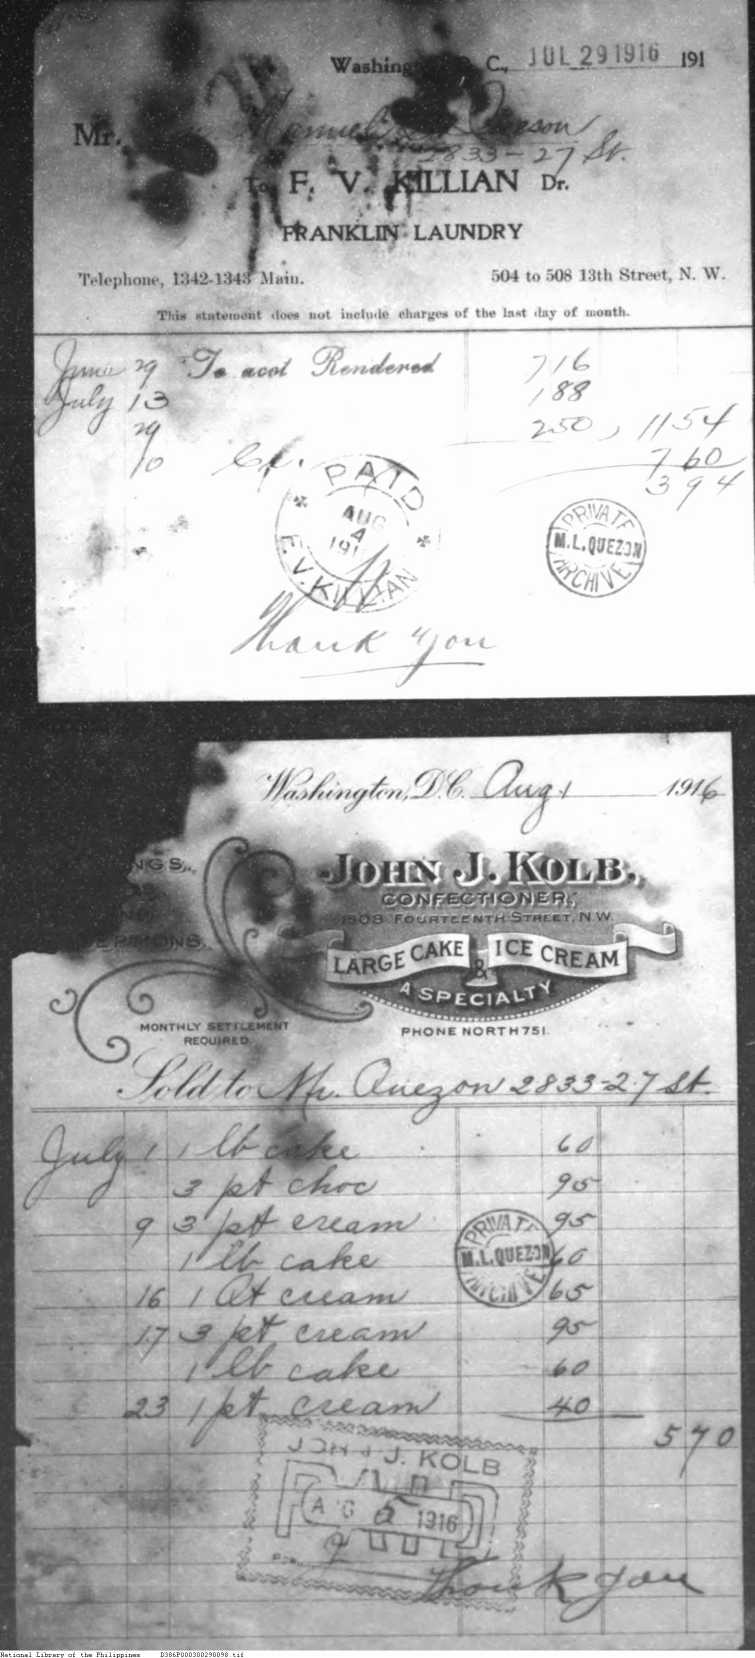 Washington, D. C., JUL 29 1916 191
Mr. Manuel Queson
2833-27 St.
To F. V. KILLIAN Dr.
FRANKLIN LAUNDRY
Telephone, 1342-1343 Main. 504 to 508 13th Street, N. W.
This statement does not include charges of the last day of month.
June 29 To acct Rendered 716
July 13 188
29 250, 1154
10 Cr. 760
394
PAID
AUG
4
191
F. V. KILLIAN
PRIVATE
M.L.QUEZON
ARCHIVE
Thank You
Washington, D.C. Aug 1 1916
NGS,
JOHN J. KOLB,
CONFECTIONER,
1508 FOURTEENTH STREET, N.W.
LARGE CAKE & ICE CREAM
A SPECIALTY
MONTHLY SETTLEMENT
REQUIRED.
PHONE NORTH 751.
Sold to Mr. Quezon 2833-27 St.
July 1 1 lb cake 60
3 pt choc 95
9 3 pt cream 95
1 lb cake 60
16 1 Qt cream 65
17 3 pt cream 95
1 lb cake 60
23 1 pt cream 40
570
PRIVATE
M.L.QUEZON
ARCHIVE
JOHN J. KOLB
PAID
AUG 5 1916
Thank you
National Library of the Philippines D386P000300290098.tif